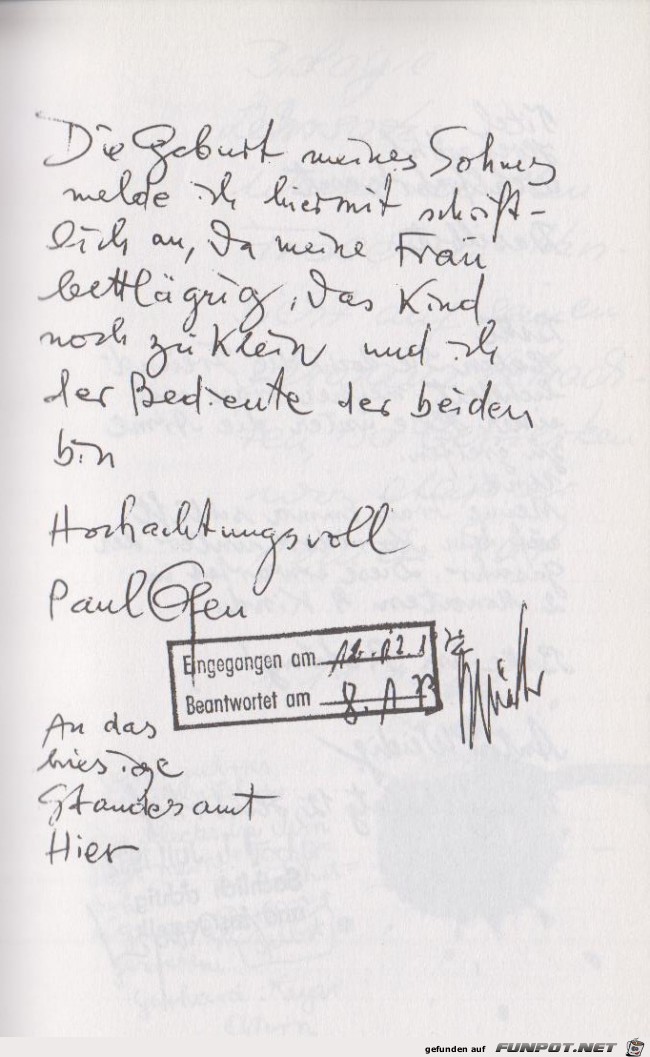 Die Geburt meines Sohnes
melde ich hiermit schrift-
lich an, da meine Frau
bettlägrig, das Kind
noch zu klein und ich
der Bediente der beiden
bin
Hochachtungsvoll
Paul
Eingegangen am
Beantwortet am
An das
hiesige
Standesamt
Hier
gefunden auf FUNPOT.NET